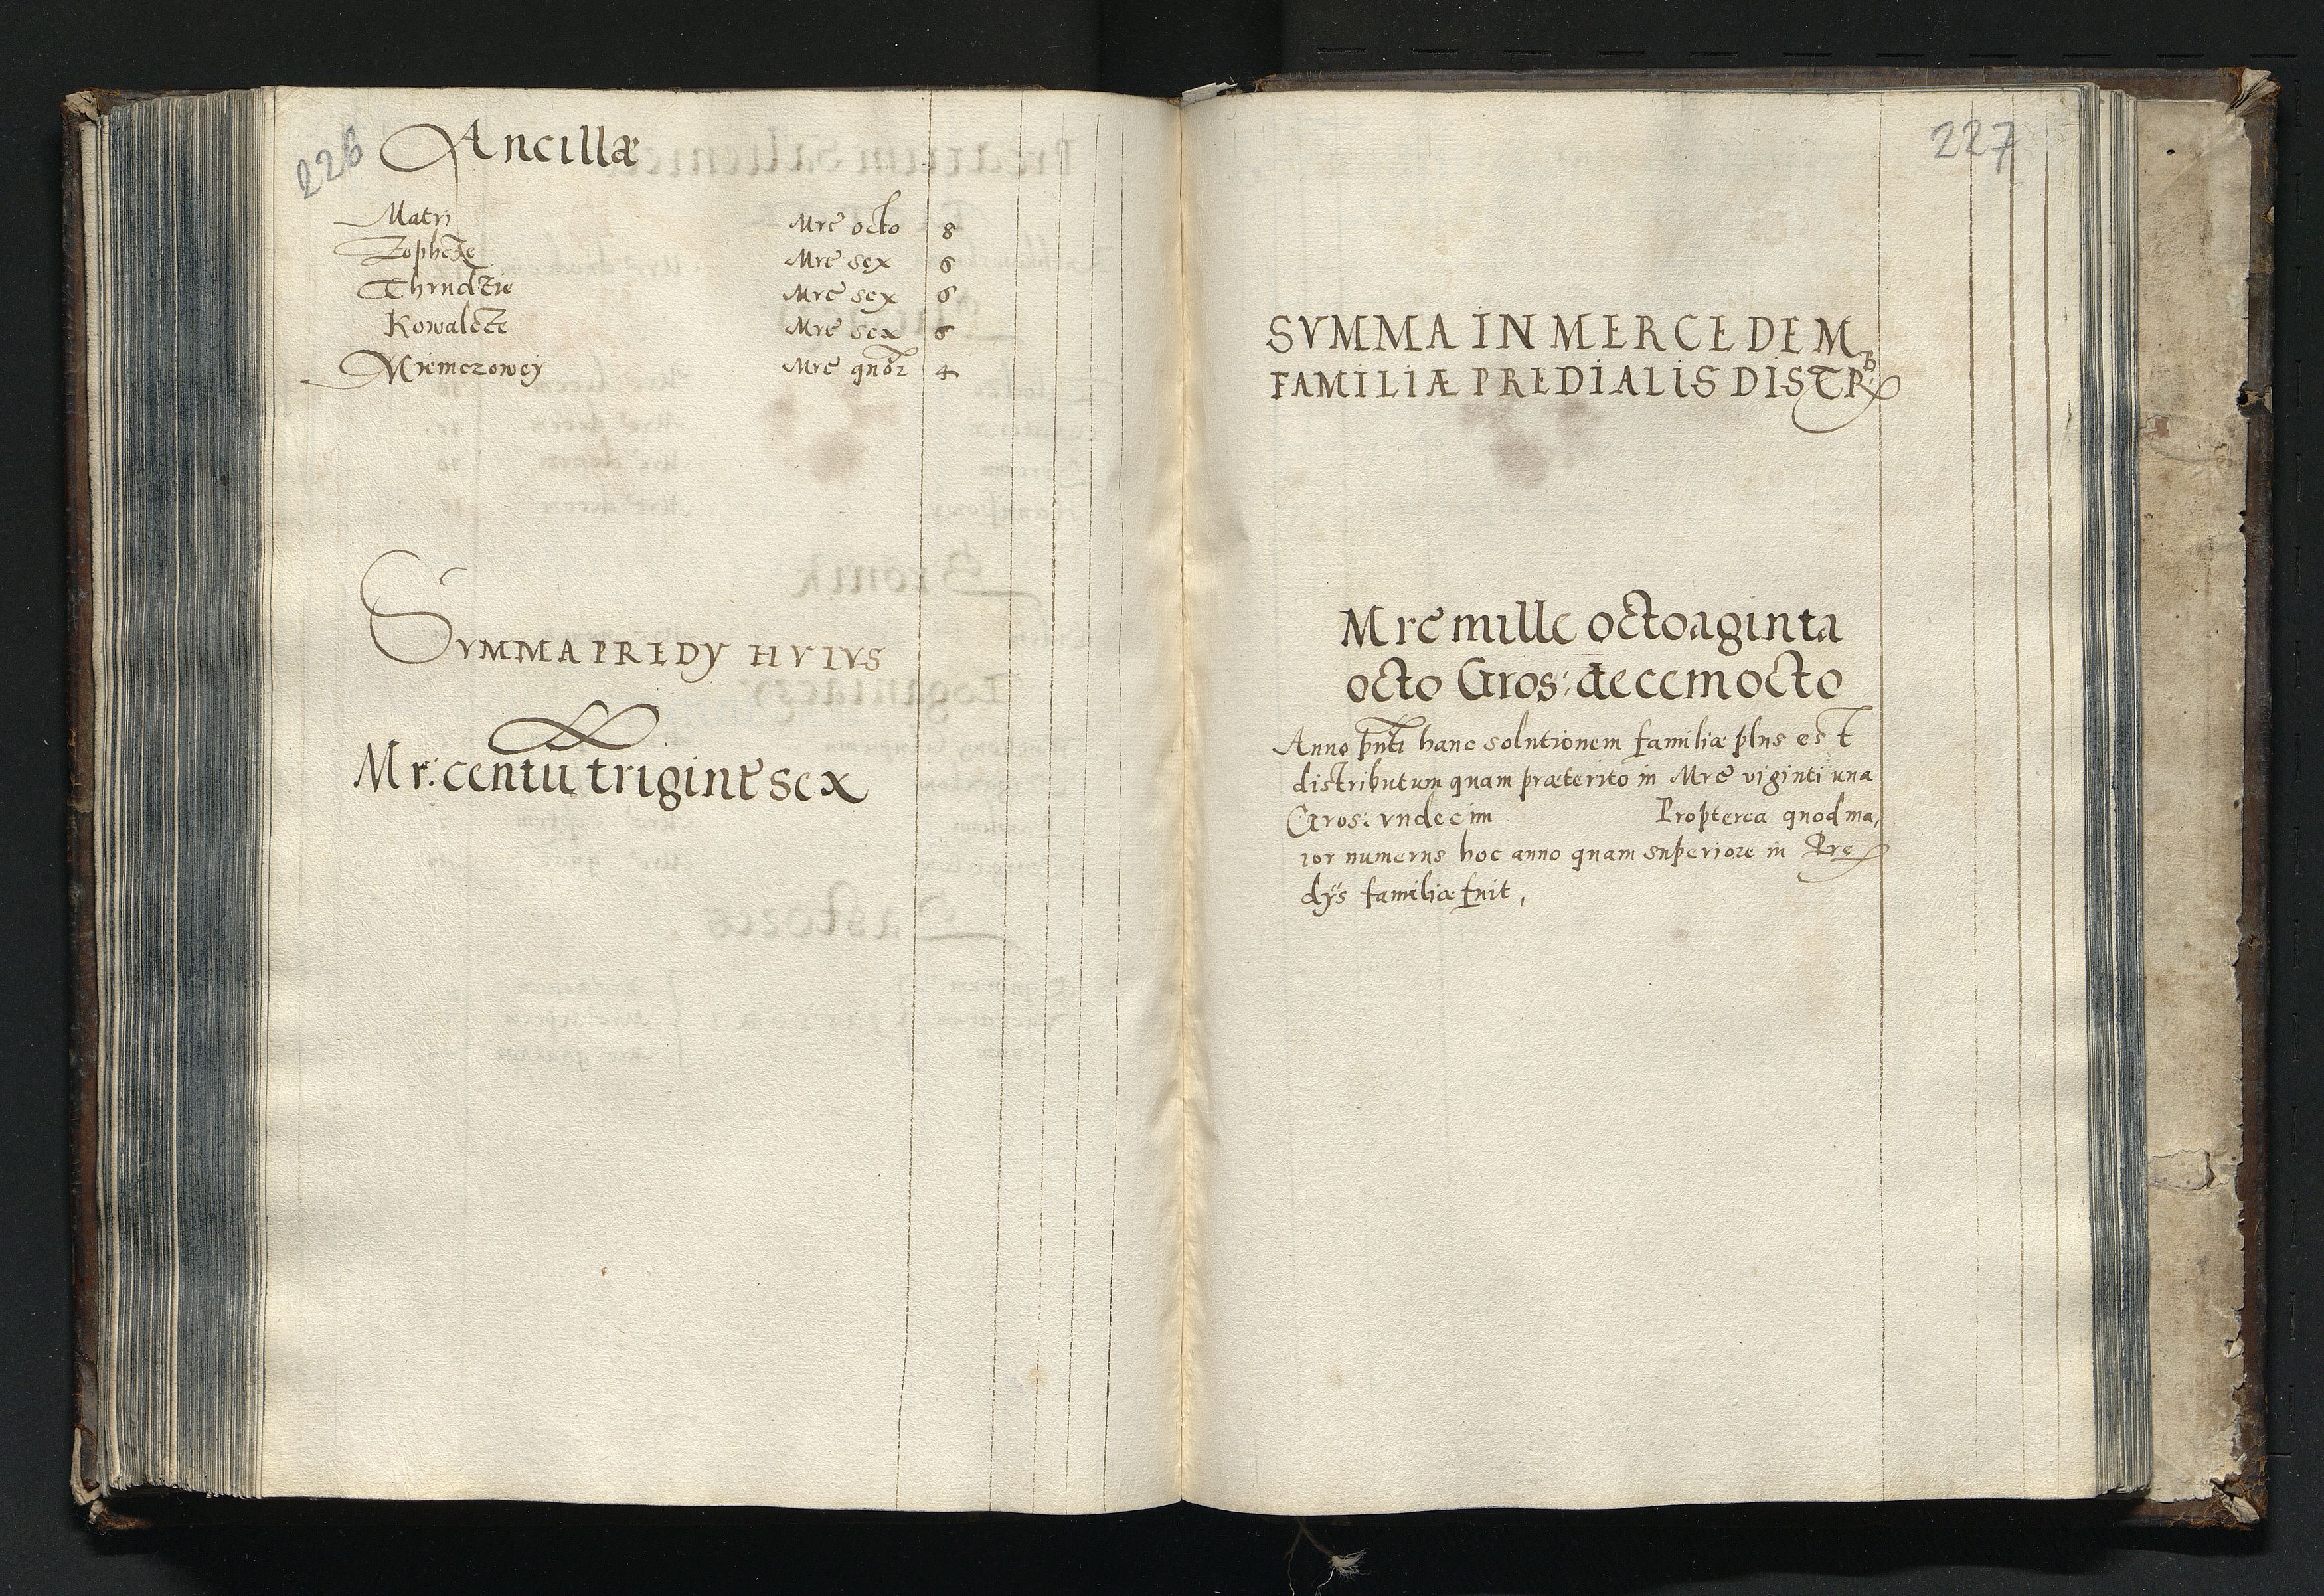 226
Ancillæ
Matri Mre octo 8
Zophcze Mre sex 6
Mre sex 6
Kowalcze Mre sex 6
Niemczowey Mre qnor 4
SVMMA PREDY HVIVS
Mr: centū trigintˉ sex
227
SVMMA IN MERCEDEM
FAMILIÆ PREDIALIS DISTRB
Mre mille octoaginta
octo Gros: decemocto
Anno pnti hanc solutionem familiæ plus est
distributum quam præterito in Mre viginti una
Gros: vndecim Propterea quod ma,
ior numerus hoc anno quam superiore in Pre
dÿs familiæ fuit,